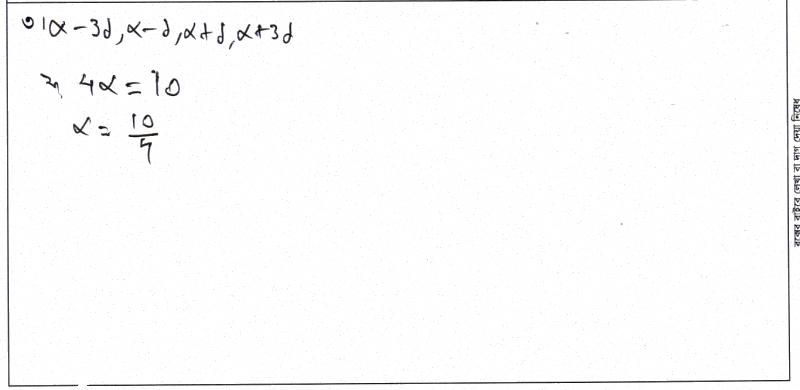 ৩। α - 3d, α - d, α + d, α + 3d
বা, 4α = 10
α = 10/4
বক্সের বাইরে লেখা বা দাগ দেয়া নিষেধ